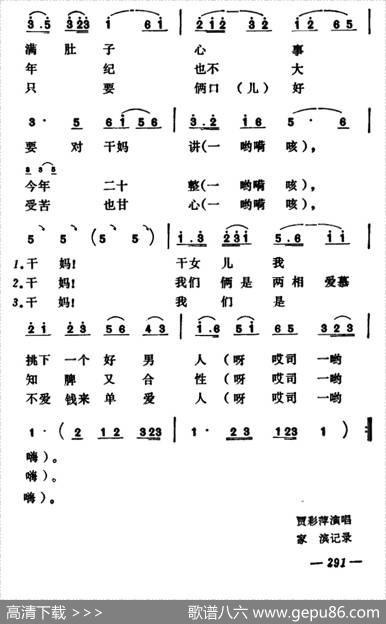 满肚子心事
年纪也不大
只要俩口（儿）好
3· 5 61 56 | 3.2 16 5· 6 |
要对干妈讲(一哟嗬咳)，
今年二十整(一哟嗬咳)，
受苦也甘心(一哟嗬咳)，
5 5 ( 5 5 )
1.干妈！干女儿我
2.干妈！我们俩是两相爱慕
3.干妈！我们是
挑下一个好男人（呀哎司一哟
知脾又合性（呀哎司一哟
不爱钱来单爱人（呀哎司一哟
1· ( 2 12 12 323 | 1· 23 123 1 ) :||
嗨）。
嗨）。
嗨）。
贾彩萍演唱
家 滨记录
— 291 —
高清下载 >>>
歌谱八六 www.gepu86.com